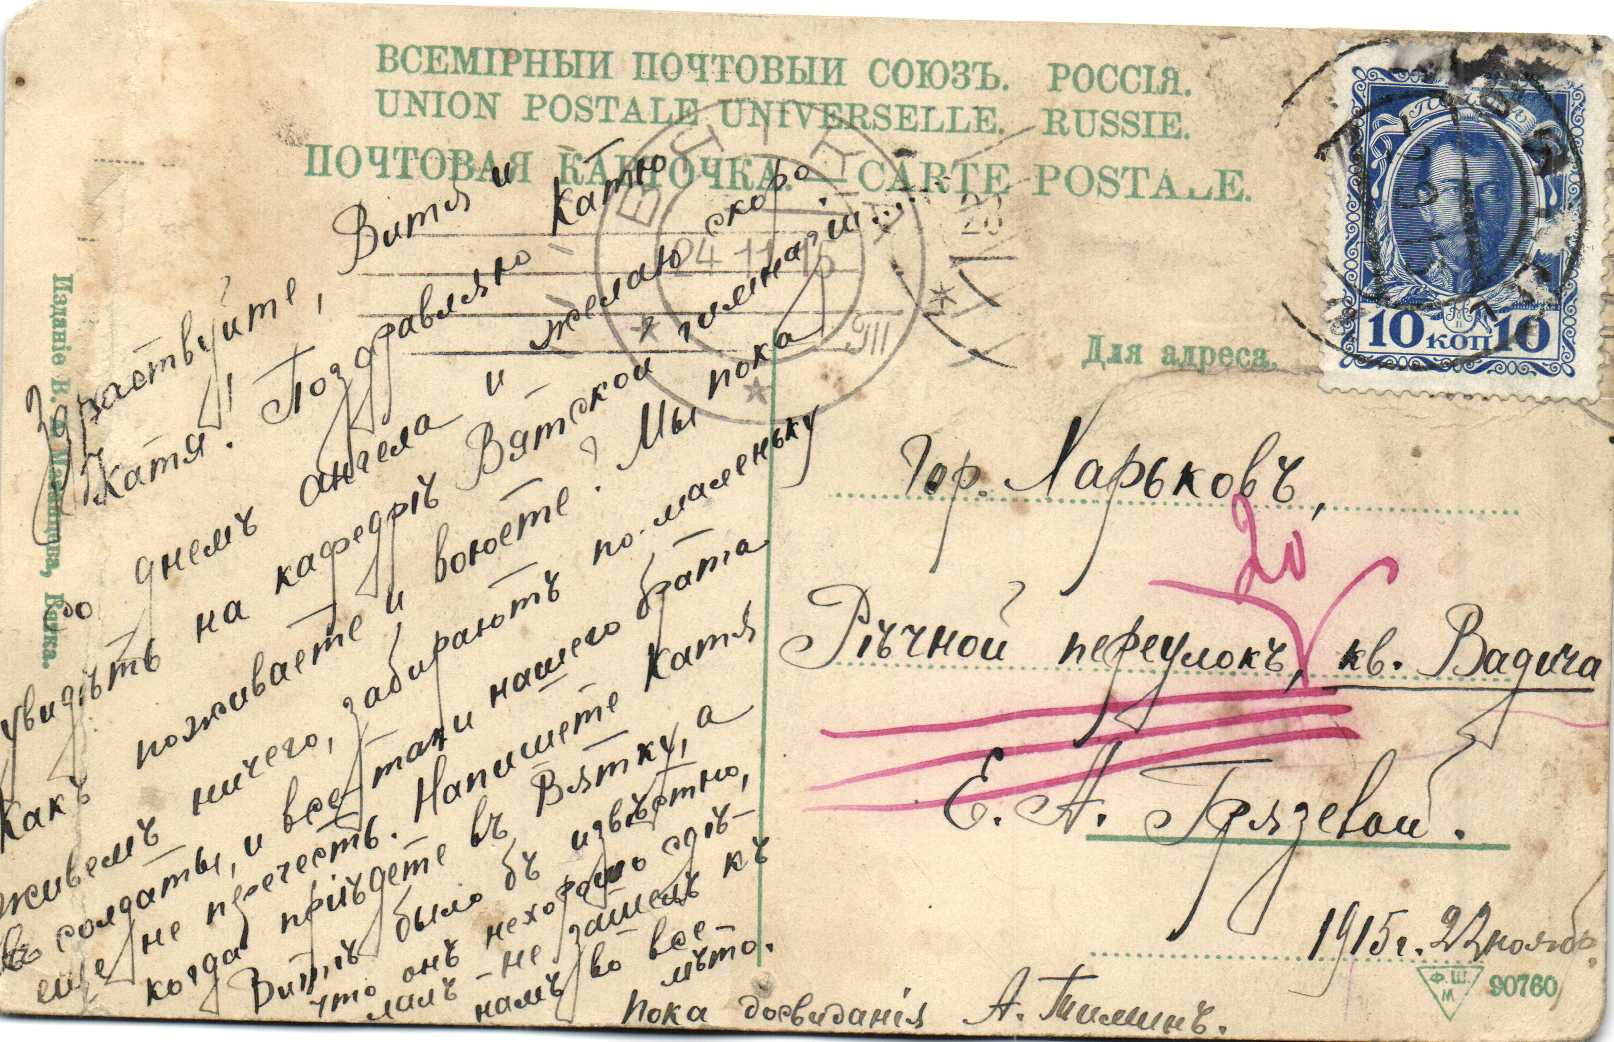 ВСЕМІРНЫЙ ПОЧТОВЫЙ СОЮЗЪ. РОССІЯ.
UNION POSTALE UNIVERSELLE. RUSSIE.
ПОЧТОВАЯ КАРТОЧКА. — CARTE POSTALE.
10 КОП 10
24 11 15
VIII
Для адреса.
Здраствуйте, Витя и
Катя! Поздравляю Катю
со днемъ ангела и желаю скоро
увидѣть на кафедрѣ Вятской гимназіи.....
Какъ поживаете и воюете? Мы пока
живемъ ничего, забираютъ по-маленьку
въ солдаты, и все-таки нашего брата
еще не перечесть. Напишете Катя
когда пріѣдете въ Вятку, а
Витѣ было бъ извѣстно,
что онъ нехорошо сдѣ-
лалъ - не зашелъ къ
намъ во все-
лѣто.
Пока досвиданія А. Тиминъ.
Гор. Харьковъ,
20
Рѣчной переулокъ, кв. Вадича
Е. А. Грязевой.
1915 г. 22 нояб.
Ф. Ш. М. 90760
Изданіе В.
Вятка.